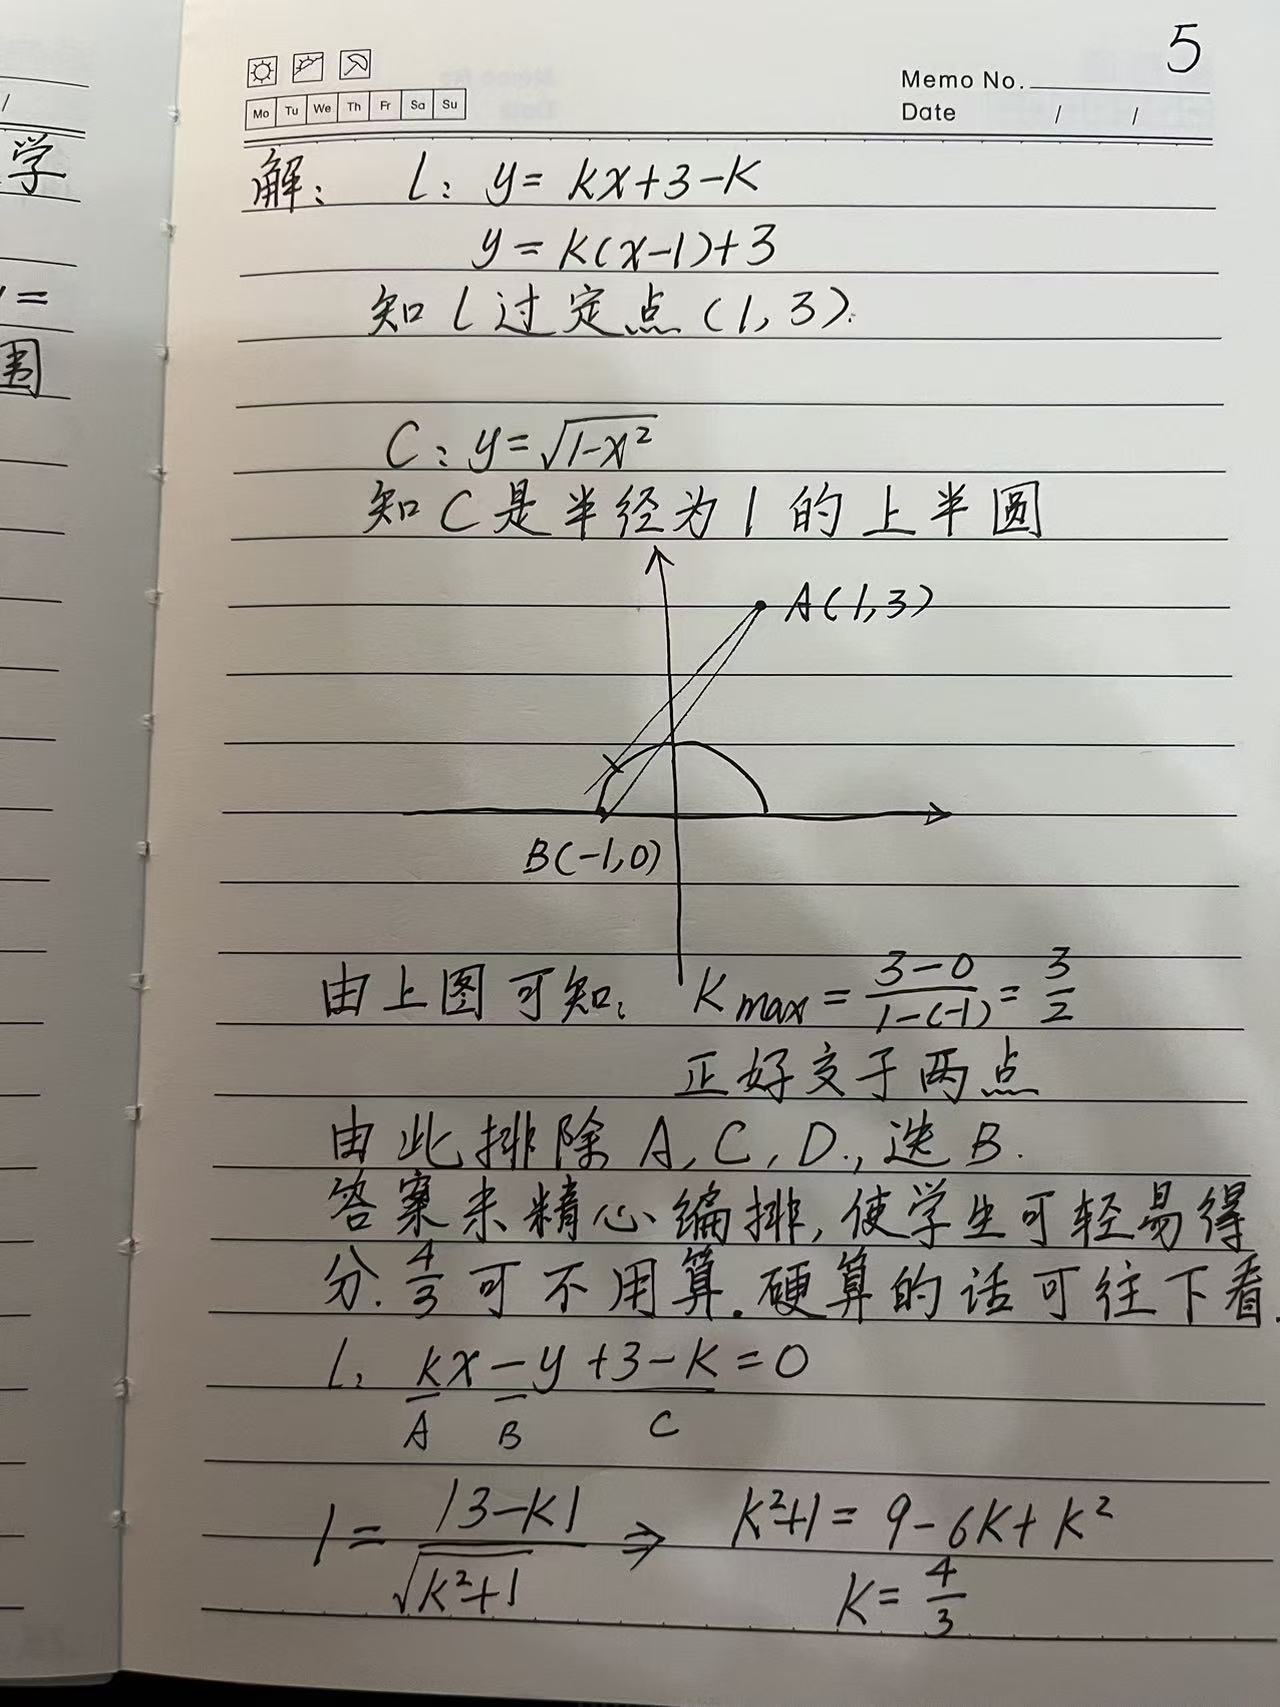 5
Memo No.
Mo Tu We Th Fr Sa Su
Date / /
/
学
=
围
解: l: y = kx+3-k
y = k(x-1)+3
知 l 过定点(1,3).
C: y=√(1-x²)
知C是半径为1的上半圆
A(1,3)
B(-1,0)
由上图可知: Kmax = (3-0)/(1-(-1)) = 3/2
正好交于两点
由此排除 A, C, D., 选 B.
答案未精心编排, 使学生可轻易得
分. 4/3 可不用算. 硬算的话可往下看.
l: kx - y + 3 - k = 0
A B C
1 = |3-k|/√(k²+1) ⇒ k²+1 = 9-6k+k²
k = 4/3